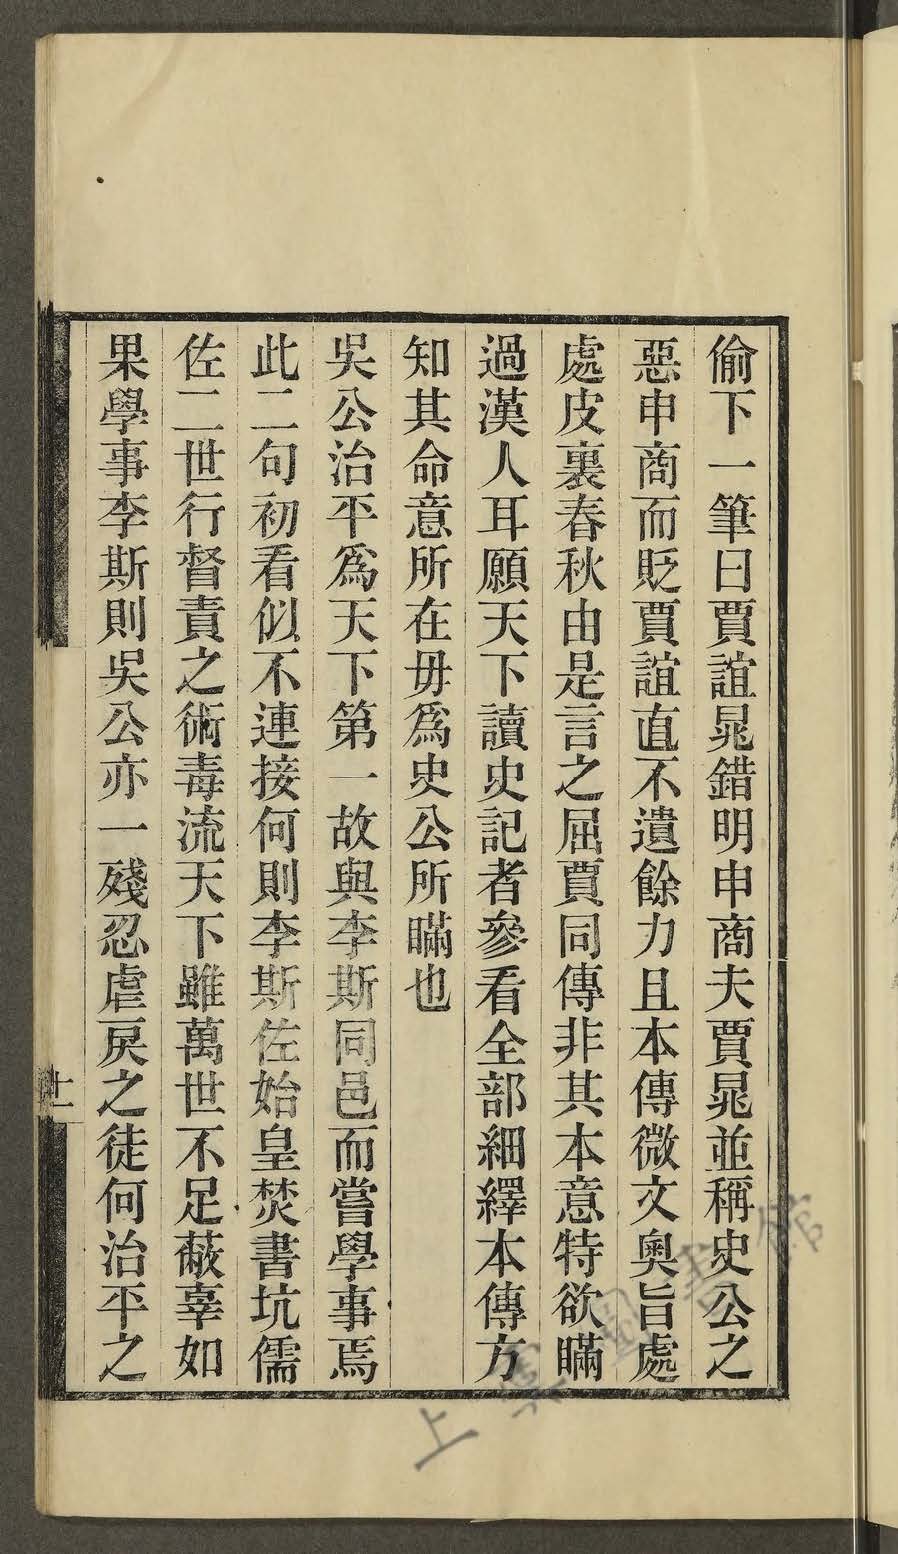 偷下一筆曰賈誼鼂錯明申商夫賈鼂並稱史公之
惡申商而貶賈誼直不遺餘力且本傳微文奧旨處
處皮裏春秋由是言之屈賈同傳非其本意特欲瞞
過漢人耳願天下讀史記者參看全部細繹本傳方
知其命意所在毋爲史公所瞞也
吳公治平爲天下第一故與李斯同邑而嘗學事焉
此二句初看似不連接何則李斯佐始皇焚書坑儒
佐二世行督責之術毒流天下雖萬世不足蔽辜如
果學事李斯則吳公亦一殘忍虐戾之徒何治平之
十一